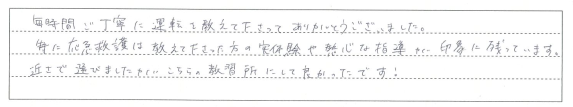 毎時間ご丁寧に運転を教えて下さってありがとうございました。
特に応急救護は教えて下さった方の実体験や熱心な指導が印象に残っています。
近さで選びましたがこちらの教習所にして良かったです!